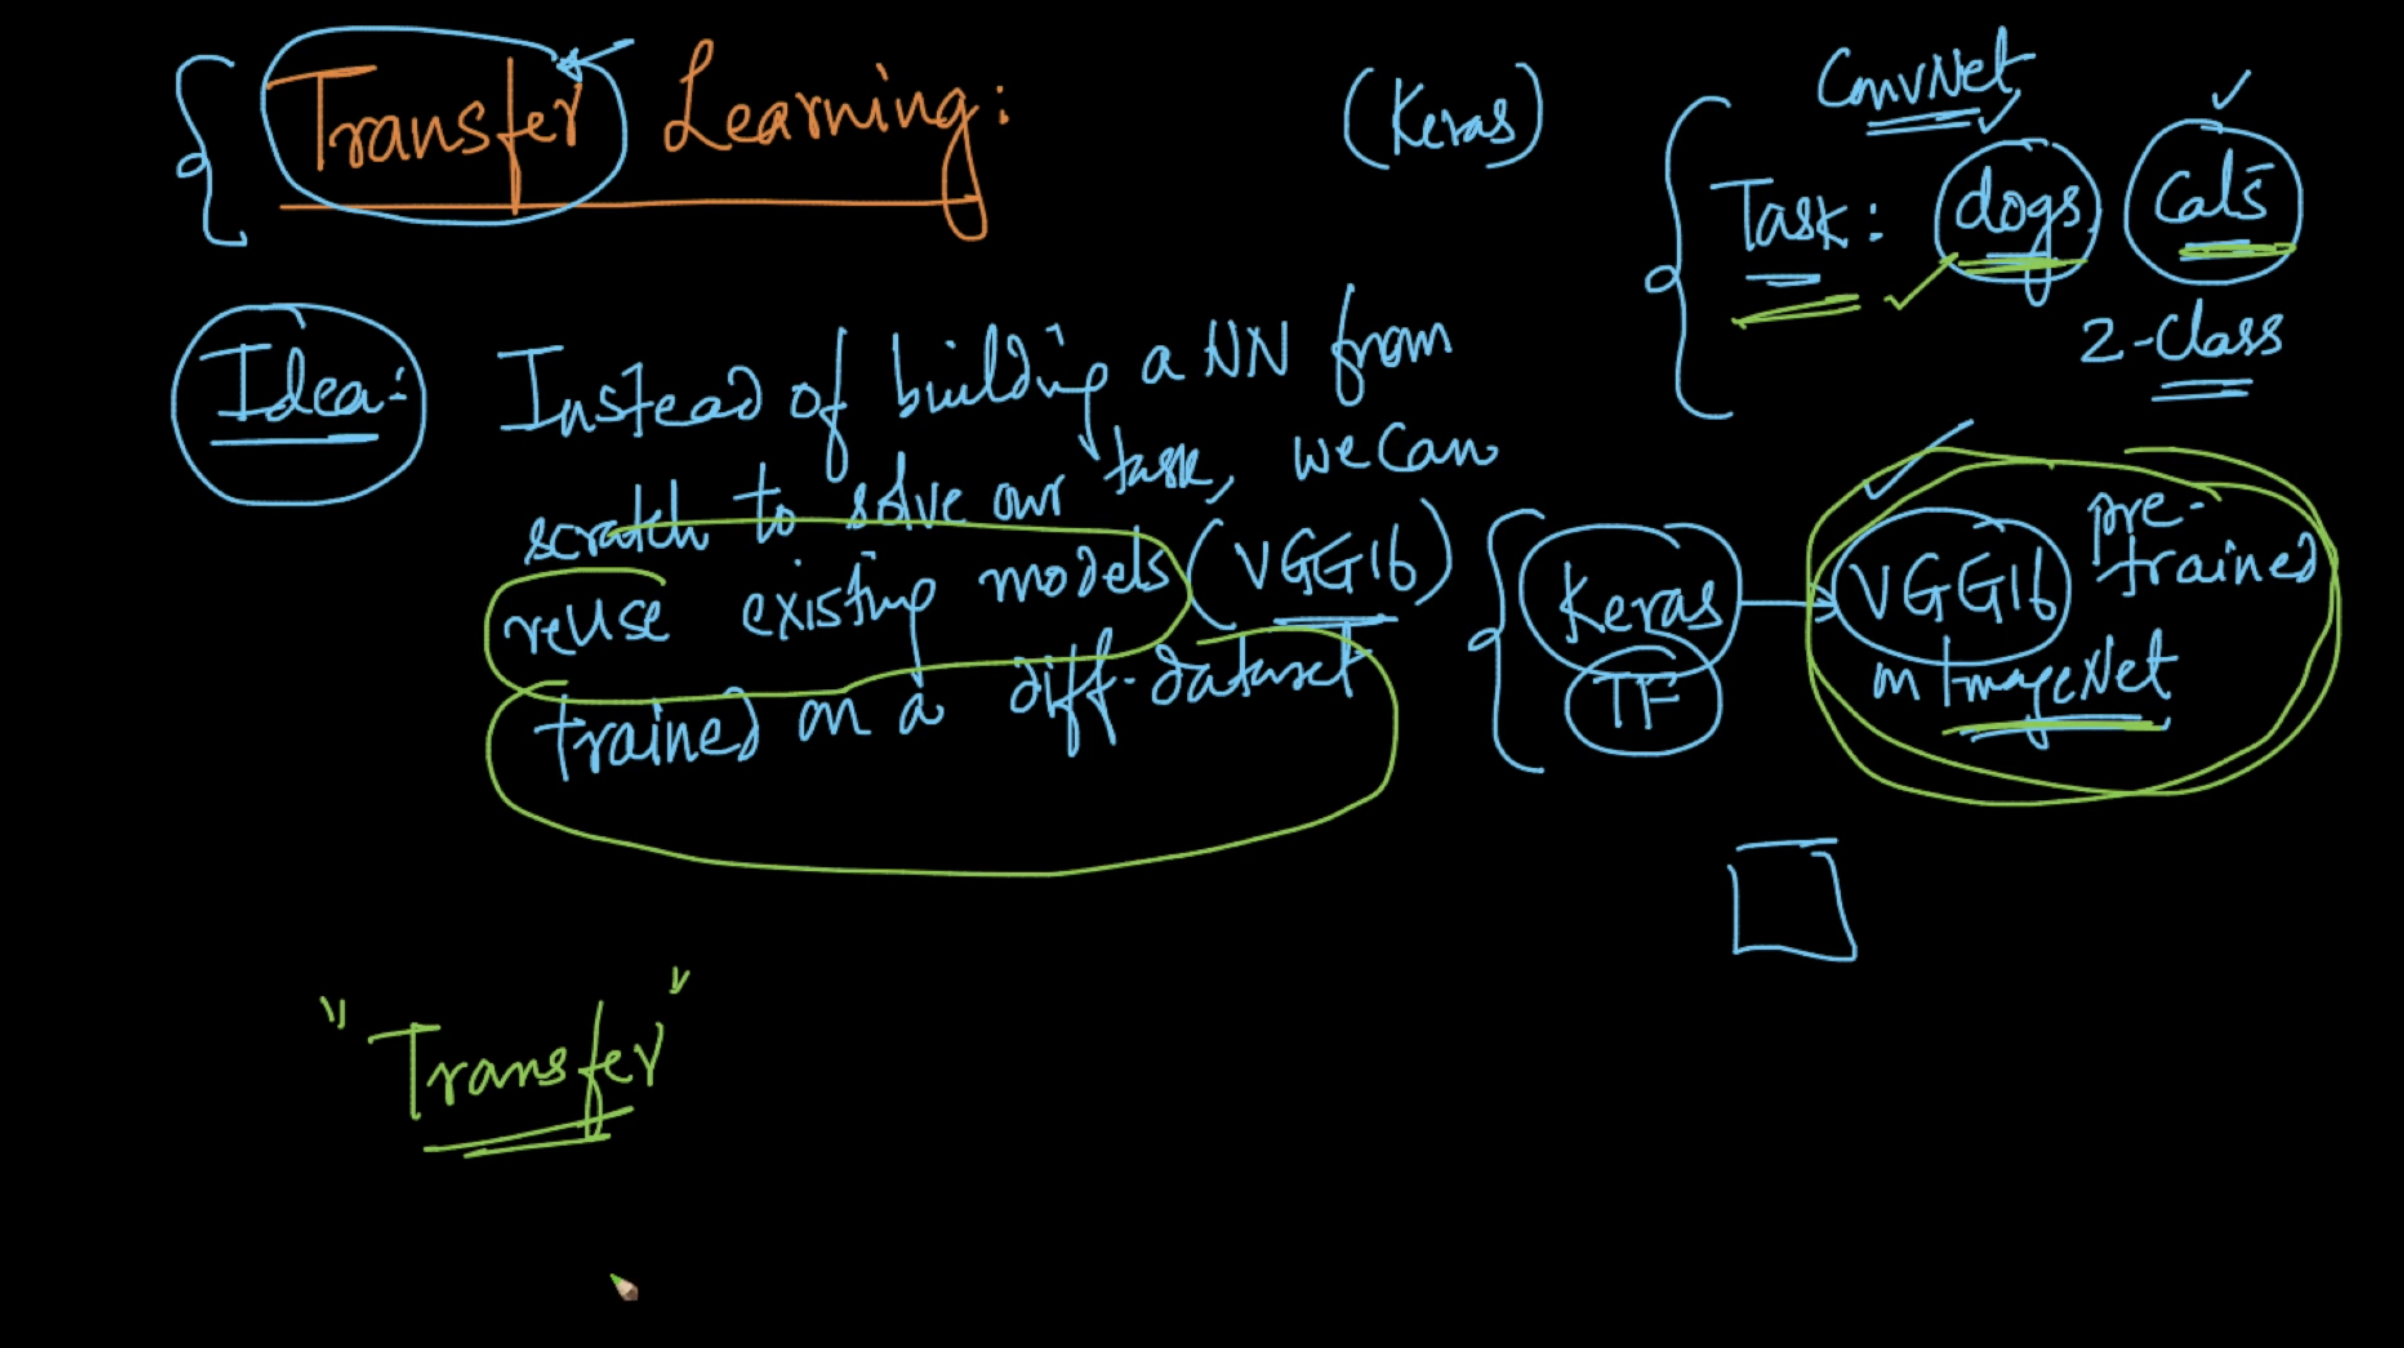 Transfer Learning:
(Keras)
ConvNet
Task: dogs, Cats
2-Class
Idea: Instead of building a NN from
scratch to solve our task, we can
reuse existing models (VGG16)
trained on a diff-dataset
Keras
TF
VGG16 pre-
trained
on ImageNet
"Transfer"